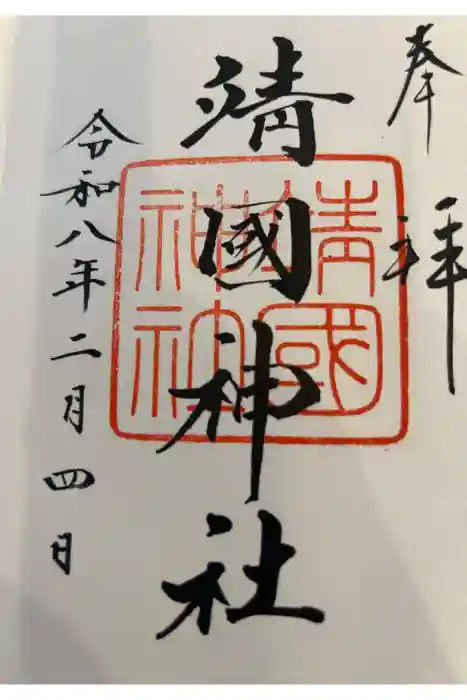 奉拝
靖國神社
靖國
神社
令和八年二月四日